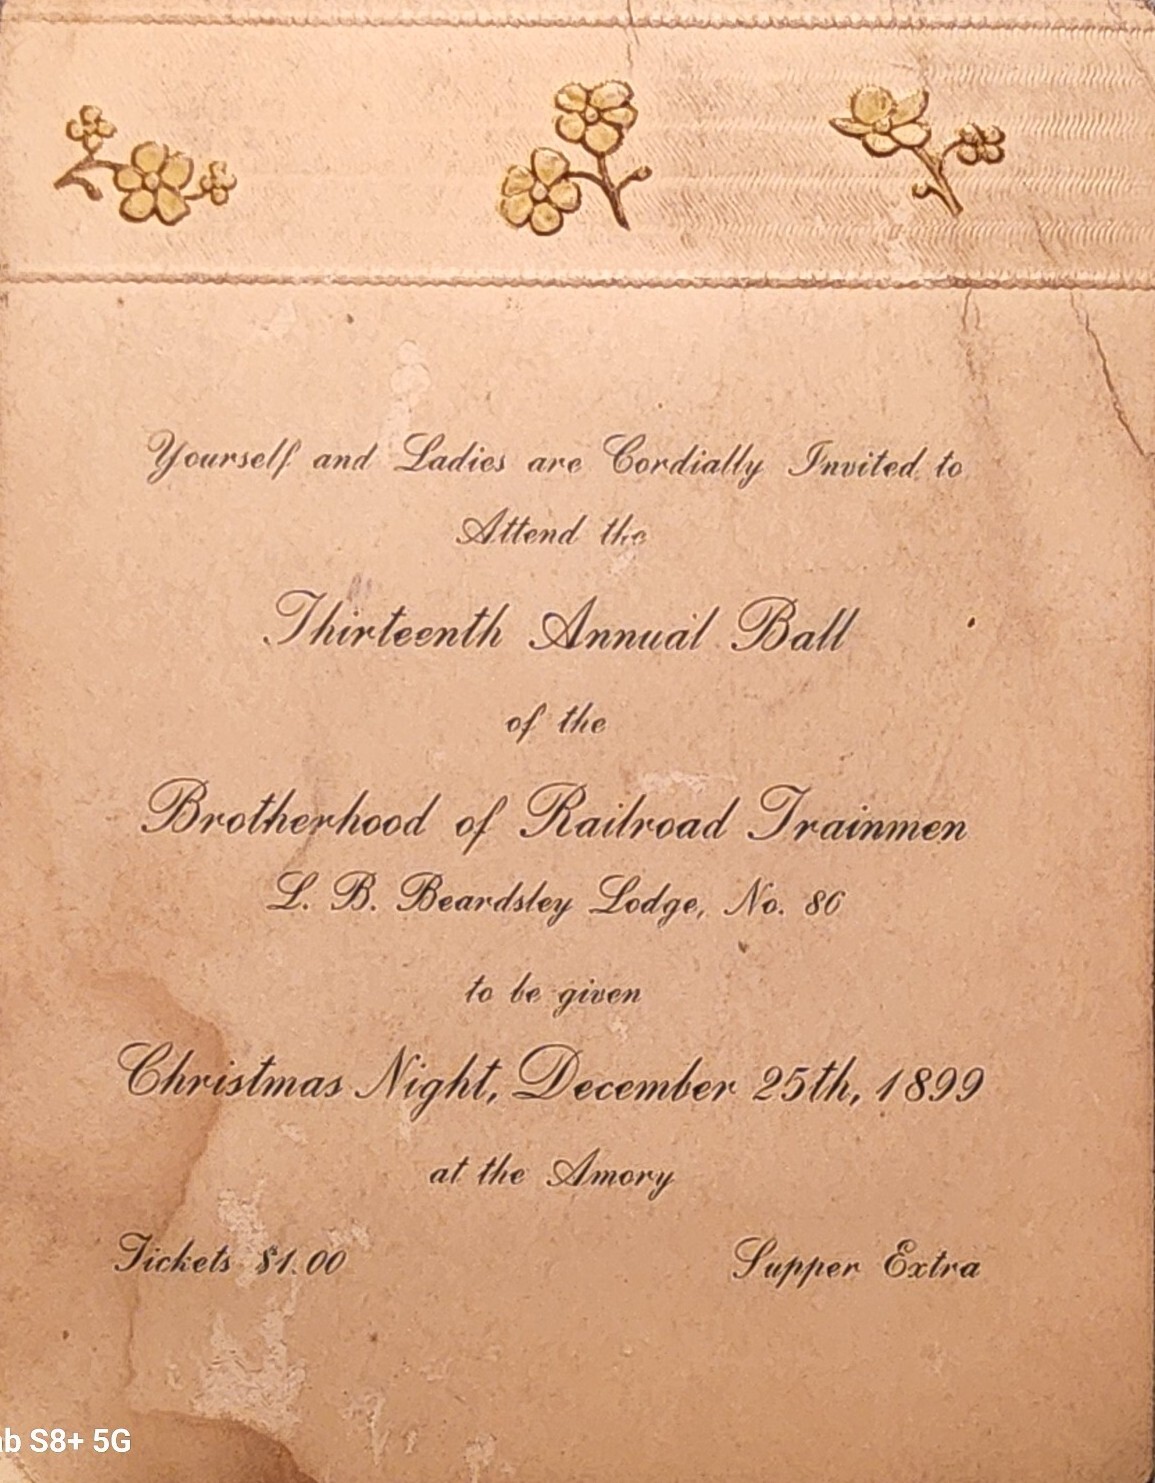 Yourself and Ladies are Cordially Invited to
Attend the
Thirteenth Annual Ball
of the
Brotherhood of Railroad Trainmen
L. B. Beardsley Lodge, No. 86
to be given
Christmas Night, December 25th, 1899
at the Amory
Tickets $1.00 Supper Extra
ab S8+ 5G